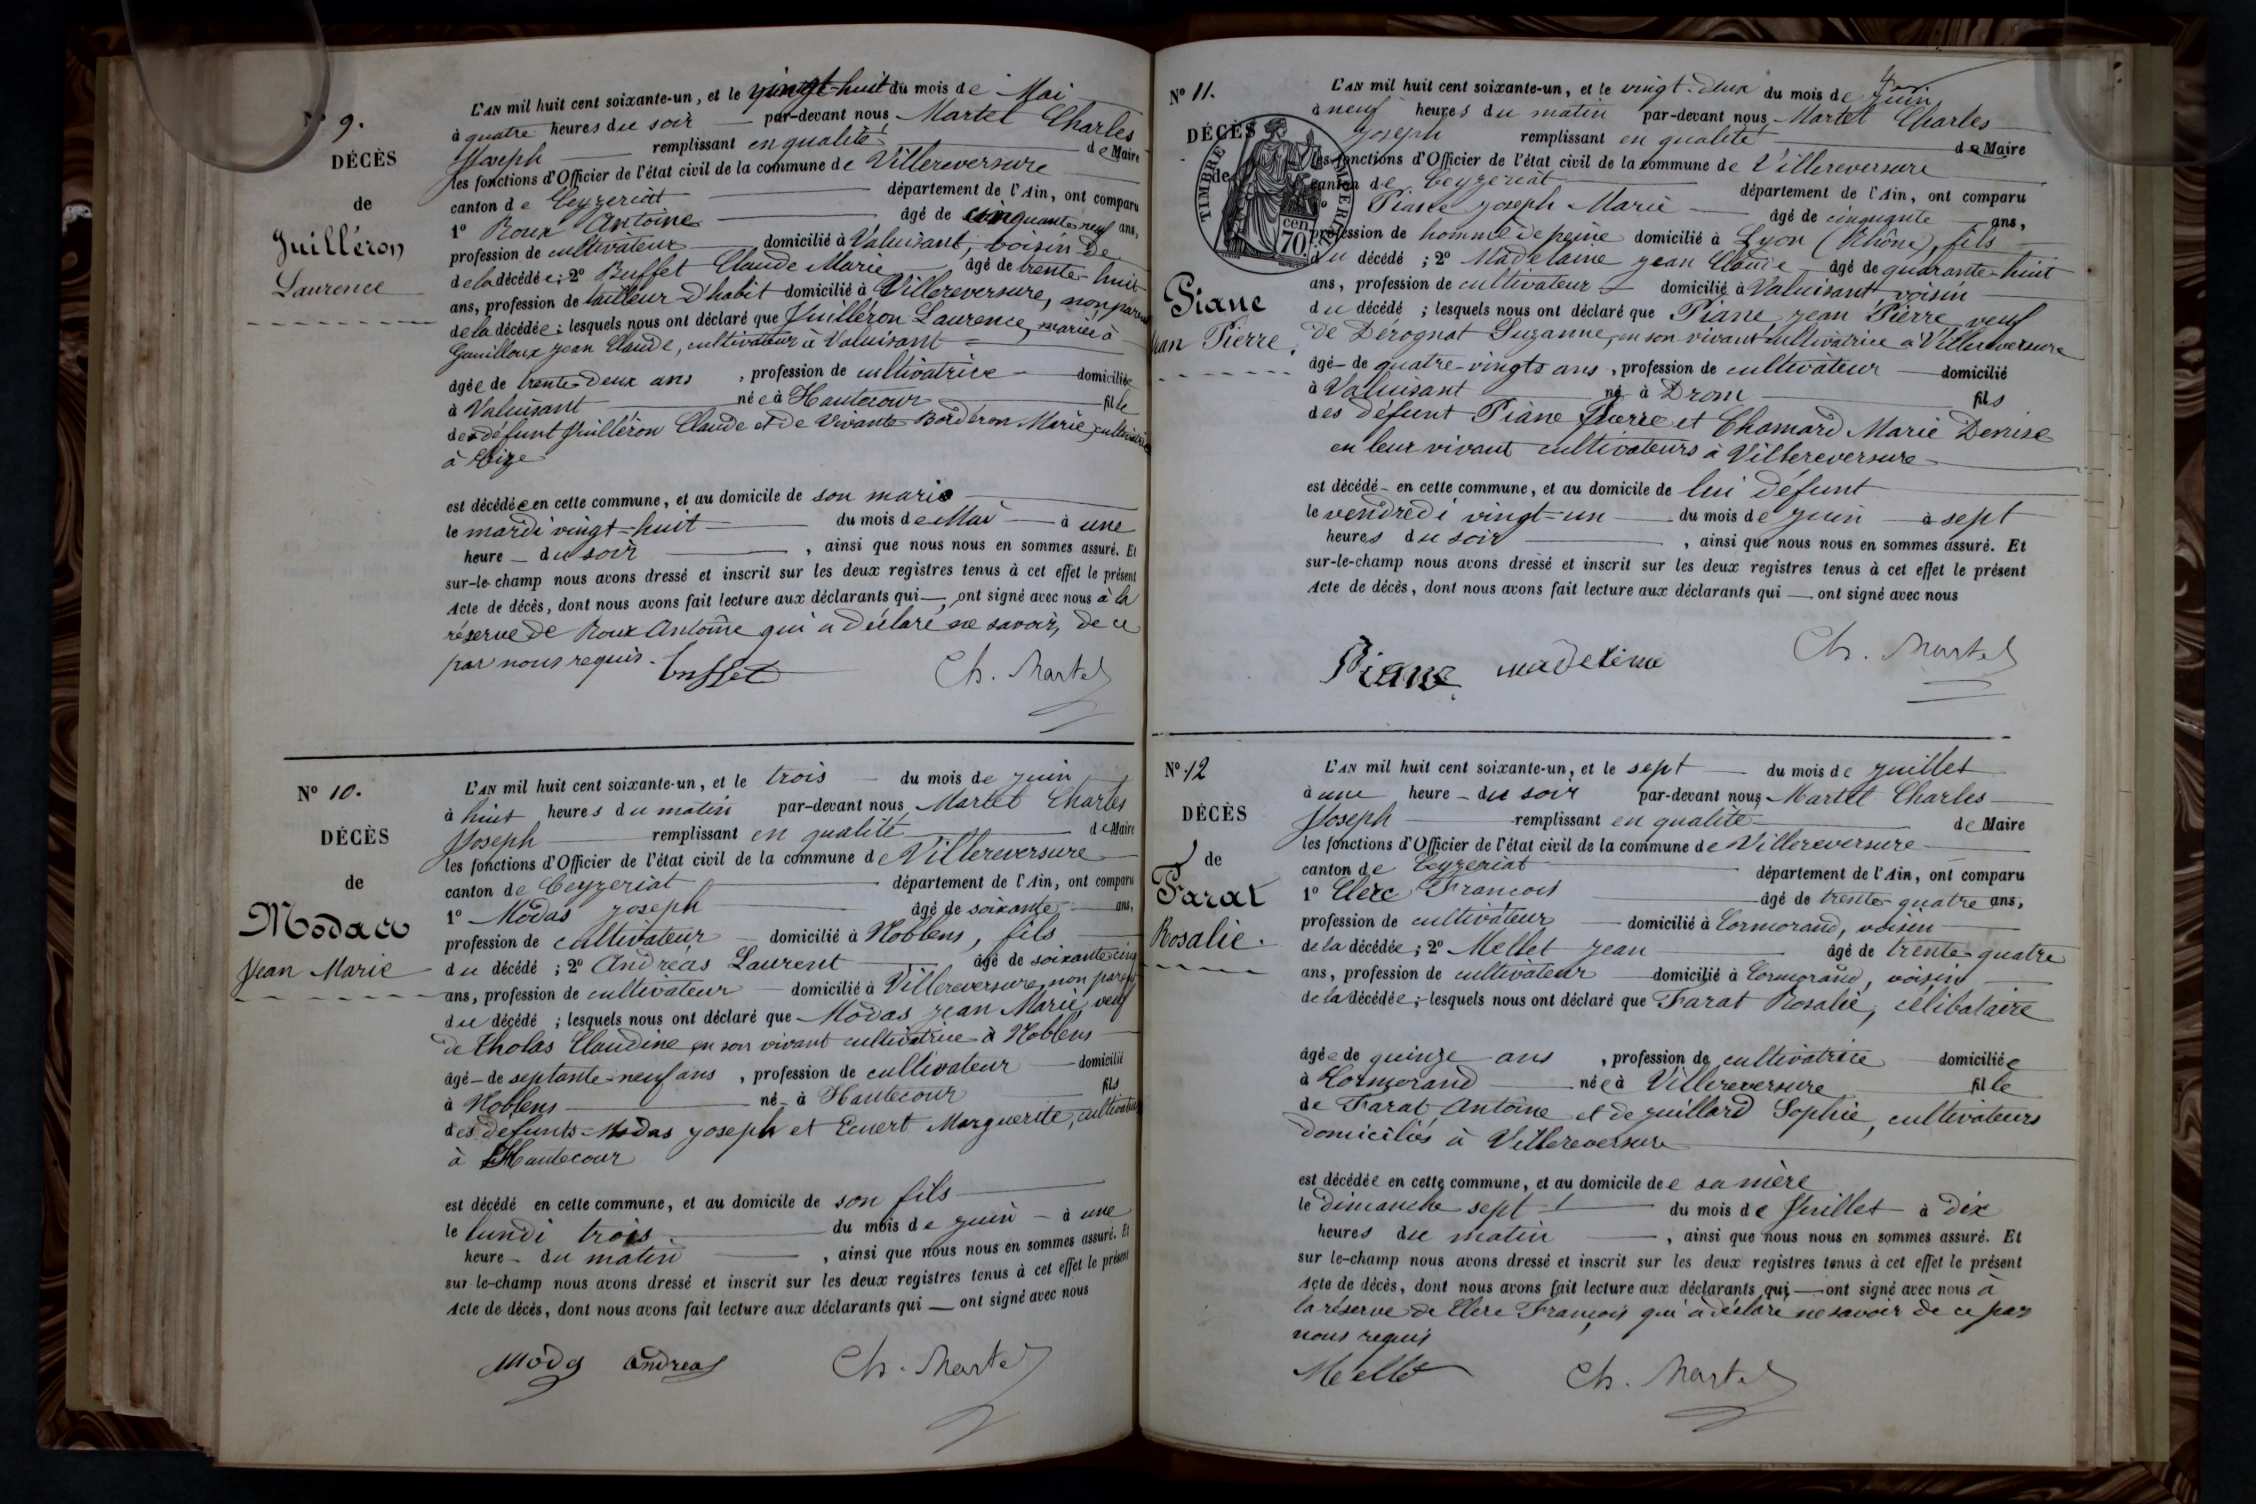 N° 9.
DÉCÈS
de
Juilléron
Laurence
L'AN mil huit cent soixante-un, et le vingt-huit du mois de Mai
à quatre heures du soir par-devant nous Martet Charles
Joseph remplissant en qualité de Maire
les fonctions d'Officier de l'état civil de la commune de Villereversure
canton de Ceyzeriat département de l'Ain, ont comparu
1° Roux Antoine âgé de cinquante neuf ans,
profession de cultivateur domicilié à Valuisant, voisin De
de la décédée; 2° Buffet Claude Marie âgé de trente-huit
ans, profession de tailleur d'habit domicilié à Villereversure, non parent
de la décédée; lesquels nous ont déclaré que Juilléron Laurence, mariée à
Gauilloux Jean Claude, cultivateur à Valuisant
âgée de trente-deux ans, profession de cultivatrice domiciliée
à Valuisant née à Hautecour fille
de défunt Juilléron Claude et de vivante Bordéron Marie, cultivatrice
à Cize
est décédée en cette commune, et au domicile de son marie
le mardi vingt-huit du mois de Mai à une
heure du soir, ainsi que nous nous en sommes assuré. Et
sur-le-champ nous avons dressé et inscrit sur les deux registres tenus à cet effet le présent
Acte de décès, dont nous avons fait lecture aux déclarants qui ont signé avec nous à la
réserve de Roux Antoine qui a déclaré ne savoir, de ce
par nous requis. Buffet Ch. Martet
N° 10.
DÉCÈS
de
Modas
Jean Marie
L'AN mil huit cent soixante-un, et le trois du mois de Juin
à huit heures du matin par-devant nous Martet Charles
Joseph remplissant en qualité de Maire
les fonctions d'Officier de l'état civil de la commune de Villereversure
canton de Ceyzeriat département de l'Ain, ont comparu
1° Modas Joseph âgé de soixante ans,
profession de cultivateur domicilié à Noblens, fils
du décédé; 2° Andréas Laurent âgé de soixante cinq
ans, profession de cultivateur domicilié à Villereversure, non parent
du décédé; lesquels nous ont déclaré que Modas Jean Marie, veuf
de Tholas Claudine en son vivant cultivatrice à Noblens
âgé de septante-neuf ans, profession de cultivateur domicilié
à Noblens né à Hautecour fils
des défunts Modas Joseph et Ecuert Marguerite, cultivateurs
à Hautecour
est décédé en cette commune, et au domicile de son fils
le lundi trois du mois de Juin à une
heure du matin, ainsi que nous nous en sommes assuré. Et
sur-le-champ nous avons dressé et inscrit sur les deux registres tenus à cet effet le présent
Acte de décès, dont nous avons fait lecture aux déclarants qui ont signé avec nous
Modas Andreas Ch. Martet
N° 11.
DÉCÈS
de
TIMBRE IMPERIAL
70 cen
Piane
Jean Pierre.
L'AN mil huit cent soixante-un, et le vingt-deux du mois de Juin
à neuf heures du matin par-devant nous Martet Charles
Joseph remplissant en qualité de Maire
les fonctions d'Officier de l'état civil de la commune de Villereversure
canton de Ceyzeriat département de l'Ain, ont comparu
1° Piane Joseph Marie âgé de cinquante ans,
profession de homme de peine domicilié à Lyon (Rhône), fils
du décédé; 2° Madelaine Jean Claude âgé de quarante-huit
ans, profession de cultivateur domicilié à Valuisant, voisin
du décédé; lesquels nous ont déclaré que Piane Jean Pierre veuf
de Dérognat Suzanne, en son vivant cultivatrice à Villereversure
âgé de quatre-vingts ans, profession de cultivateur domicilié
à Valuisant né à Drom fils
des défunt Piane Pierre et Chamard Marie Denise
en leur vivant cultivateurs à Villereversure
est décédé en cette commune, et au domicile de lui défunt
le vendredi vingt-un du mois de Juin à sept
heures du soir, ainsi que nous nous en sommes assuré. Et
sur-le-champ nous avons dressé et inscrit sur les deux registres tenus à cet effet le présent
Acte de décès, dont nous avons fait lecture aux déclarants qui ont signé avec nous
Piane madeleine Ch. Martet
N° 12
DÉCÈS
de
Farat
Rosalie.
L'AN mil huit cent soixante-un, et le sept du mois de Juillet
à une heure du soir par-devant nous Martet Charles
Joseph remplissant en qualité de Maire
les fonctions d'Officier de l'état civil de la commune de Villereversure
canton de Ceyzeriat département de l'Ain, ont comparu
1° Clerc François âgé de trente-quatre ans,
profession de cultivateur domicilié à Cormorand, voisin
de la décédée; 2° Mellet Jean âgé de trente quatre
ans, profession de cultivateur domicilié à Cormorand, voisin
de la décédée; lesquels nous ont déclaré que Farat Rosalie, célibataire
âgée de quinze ans, profession de cultivatrice domiciliée
à Cormorand née à Villereversure fille
de Farat Antoine et de Juillard Sophie, cultivateurs
domiciliés à Villereversure
est décédée en cette commune, et au domicile de sa mère
le dimanche sept du mois de Juillet à dix
heures du matin, ainsi que nous nous en sommes assuré. Et
sur le-champ nous avons dressé et inscrit sur les deux registres tenus à cet effet le présent
Acte de décès, dont nous avons fait lecture aux déclarants qui ont signé avec nous à
la réserve de Clerc François qui a déclaré ne savoir de ce par
nous requis
Mellet Ch. Martet